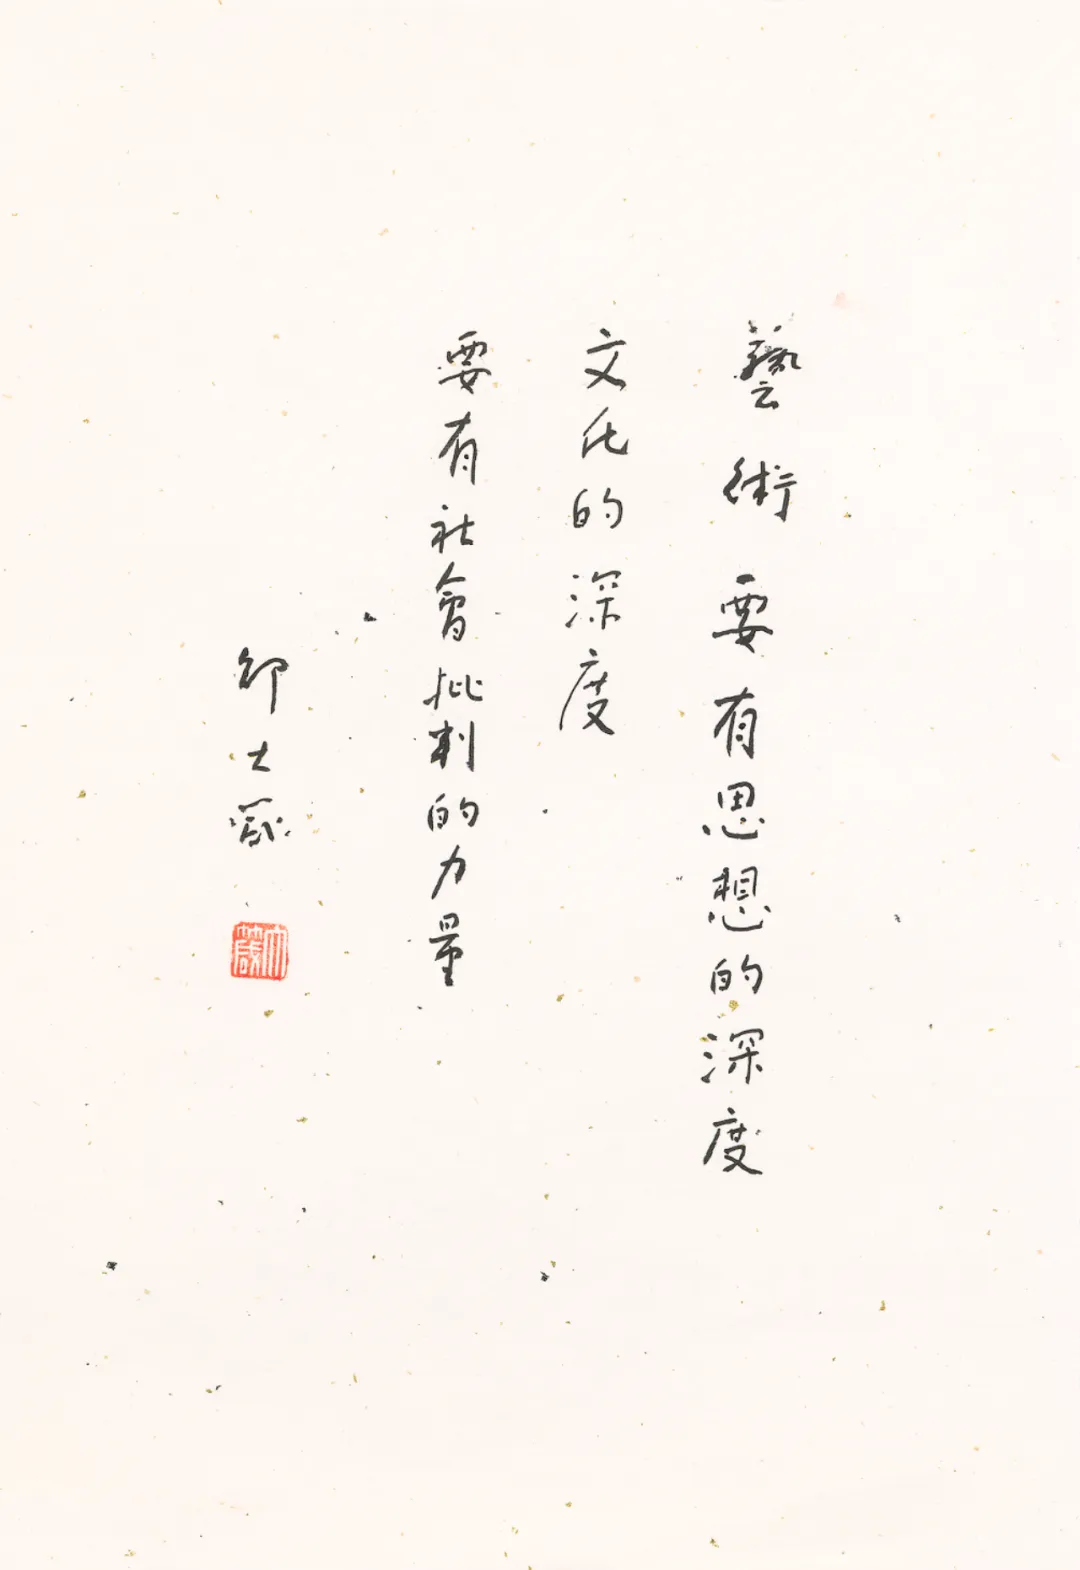 藝術要有思想的深度
文化的深度
要有社會批判的力量